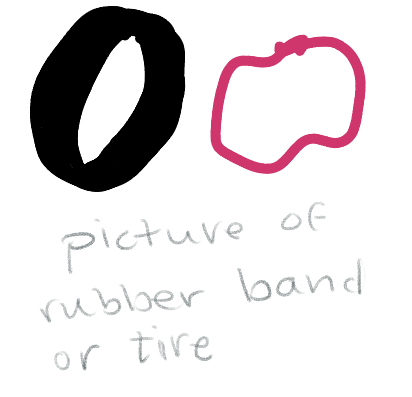 picture of
rubber band
or tire